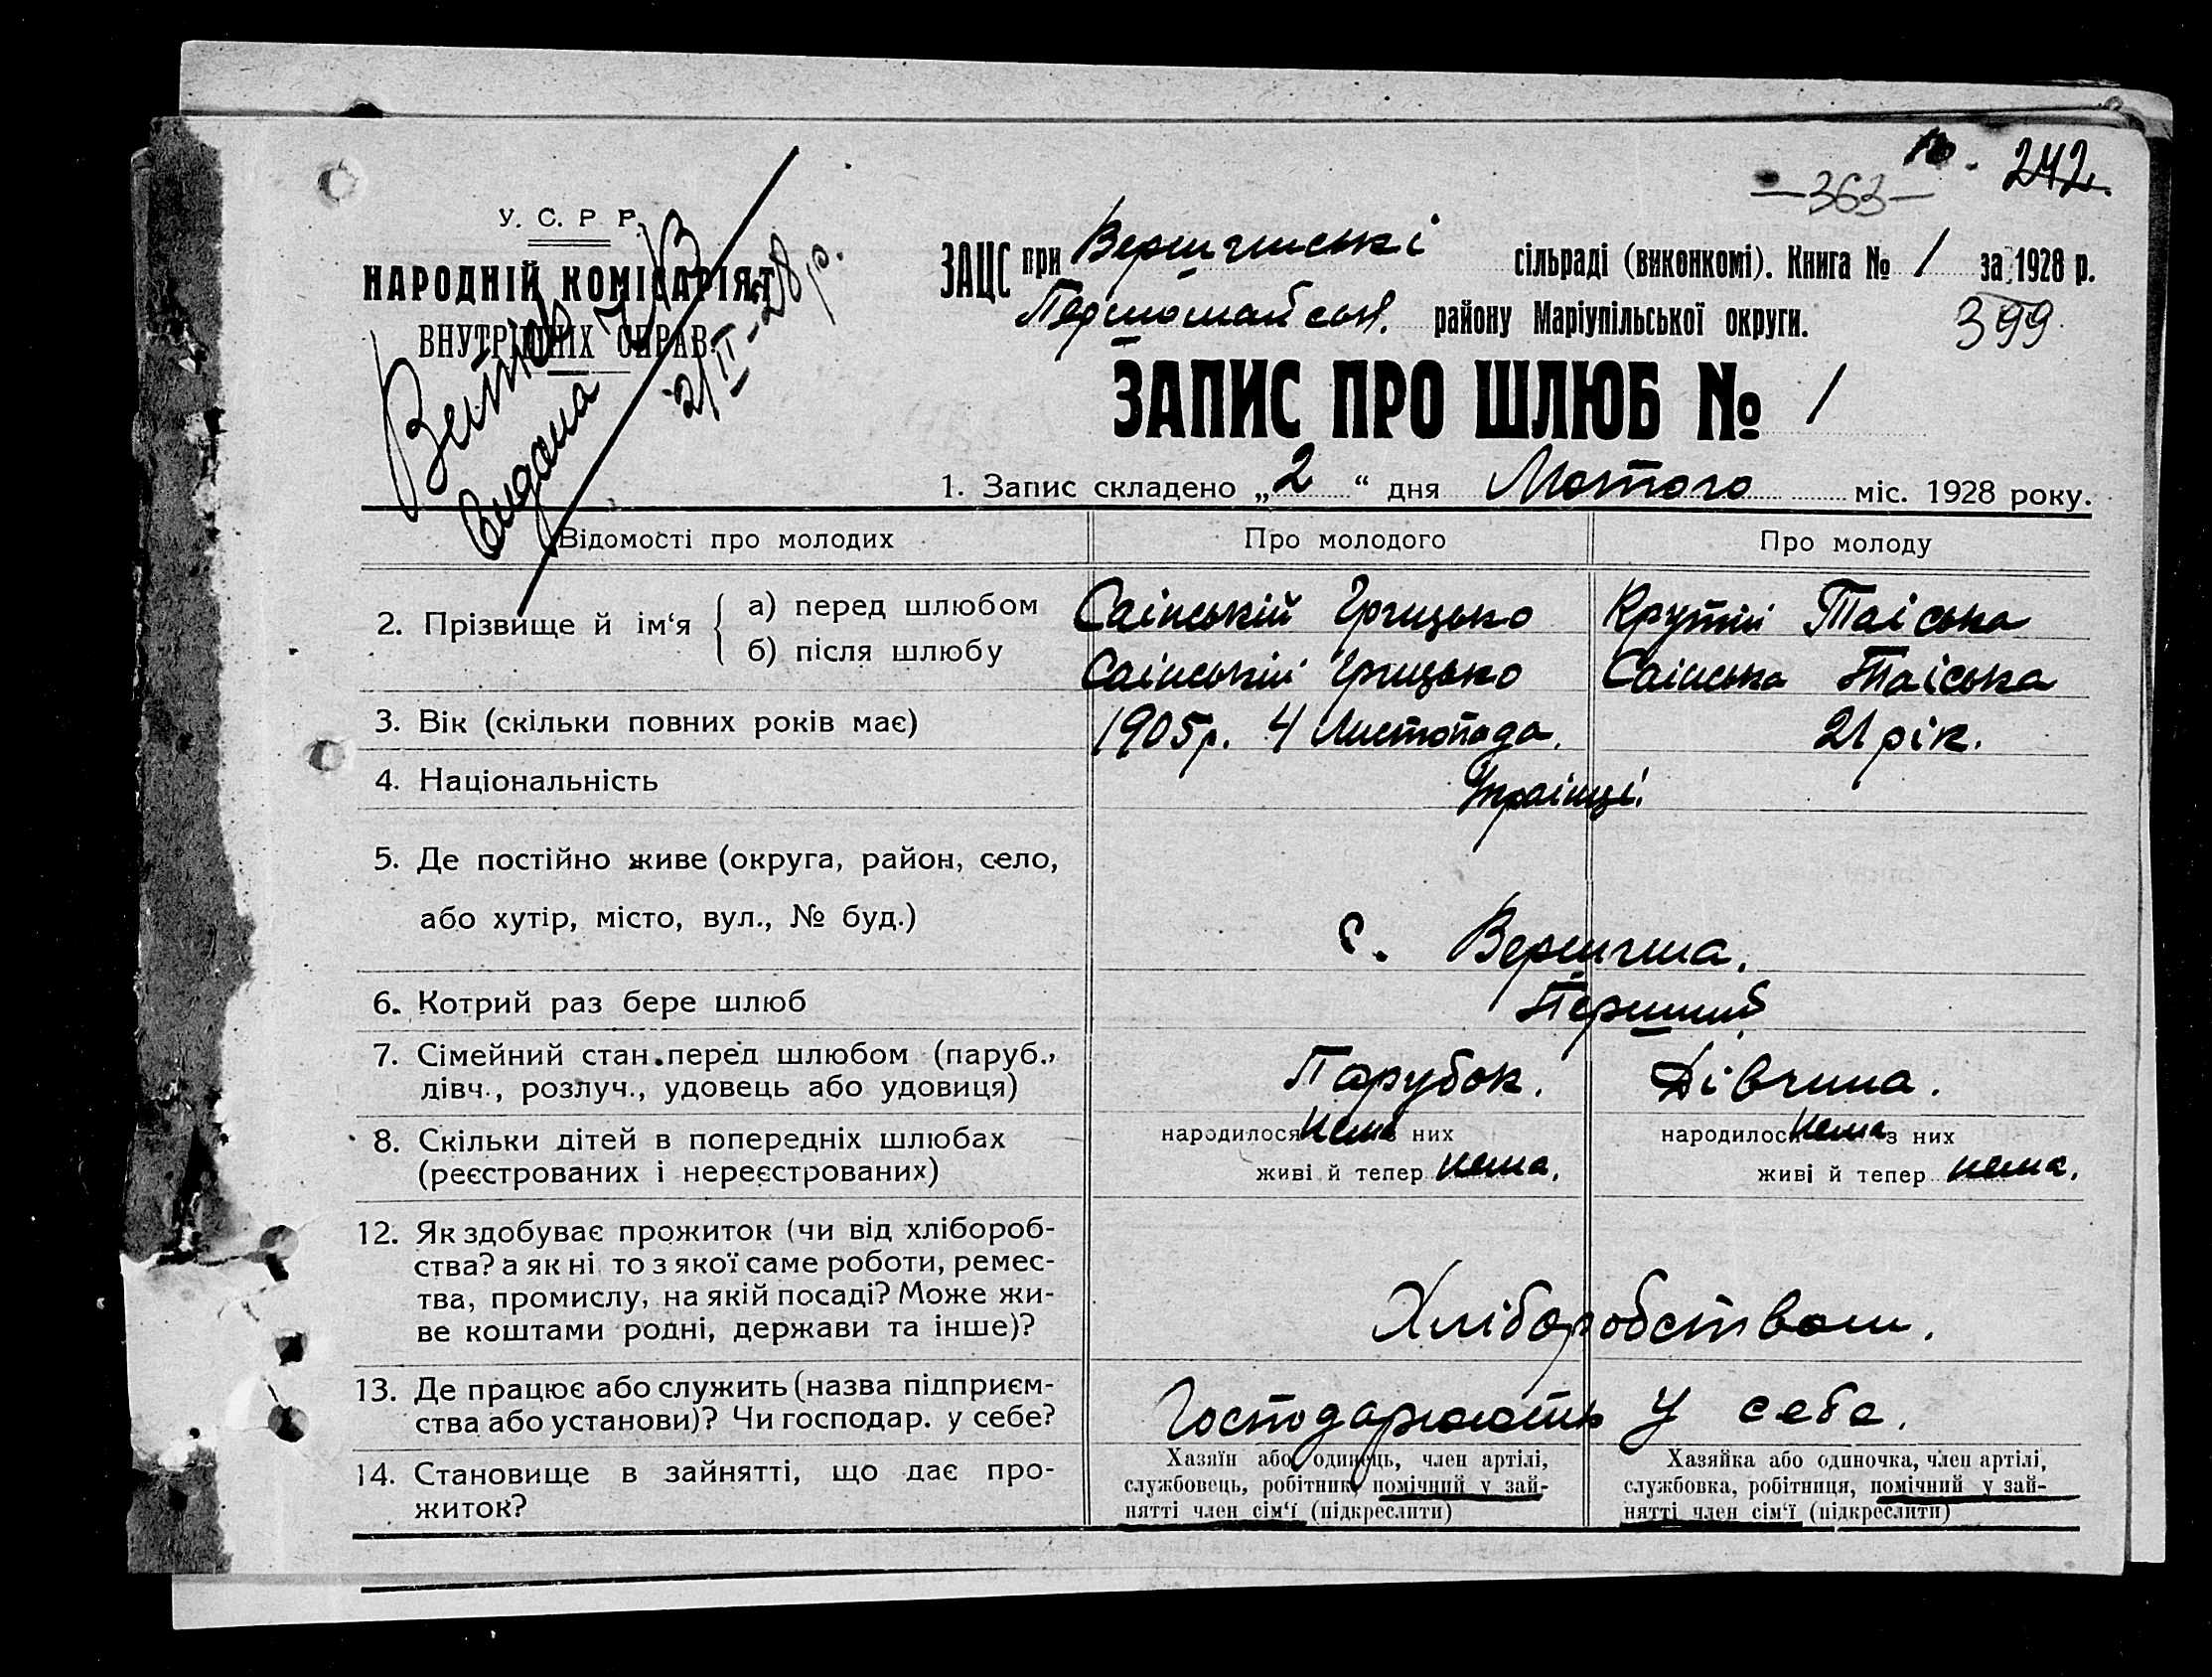 363
242.
У. С. Р. Р.
НАРОДНІЙ КОМІСАРІЯТ
ВНУТРІШНІХ СПРАВ.
Видана
2/II-28 р.
ЗАЦС при сільраді (виконкомі). Книга № 1 за 1928 р.
району Маріупільської округи.
399
ЗАПИС ПРО ШЛЮБ № 1
1. Запис складено „2“ дня Лютого міс. 1928 року.
Відомості про молодих Про молодого Про молоду
2. Прізвище й ім‘я { а) перед шлюбом Саінській Грицько Крутій Таіська
б) після шлюбу Саінській Грицько Саінська Таіська
3. Вік (скільки повних років має) 1905р. 4 Листопада. 21 рік.
4. Національність Украінці.
5. Де постійно живе (округа, район, село,
або хутір, місто, вул., № буд.) с. Вершина.
6. Котрий раз бере шлюб Перший
7. Сімейний стан перед шлюбом (паруб., Парубок. Дівчина.
дівч., розлуч., удовець або удовиця)
8. Скільки дітей в попередніх шлюбах народилося нема з них народилося нема з них
(реєстрованих і нереєстрованих) живі й тепер нема. живі й тепер нема.
12. Як здобуває прожиток (чи від хлібороб-
ства? а як ні то з якої саме роботи, ремес-
тва, промислу, на якій посаді? Може жи- Хліборобством.
ве коштами родні, держави та інше)?
13. Де працює або служить (назва підприєм- Господарюють у себе.
ства або установи)? Чи господар. у себе?
14. Становище в зайнятті, що дає про-
житок?
Хазяїн або одинець, член артілі,
службовець, робітник, помічний у зай-
нятті член сім‘ї (підкреслити)
Хазяйка або одиночка, член артілі,
службовка, робітниця, помічний у зай-
нятті член сім‘ї (підкреслити)